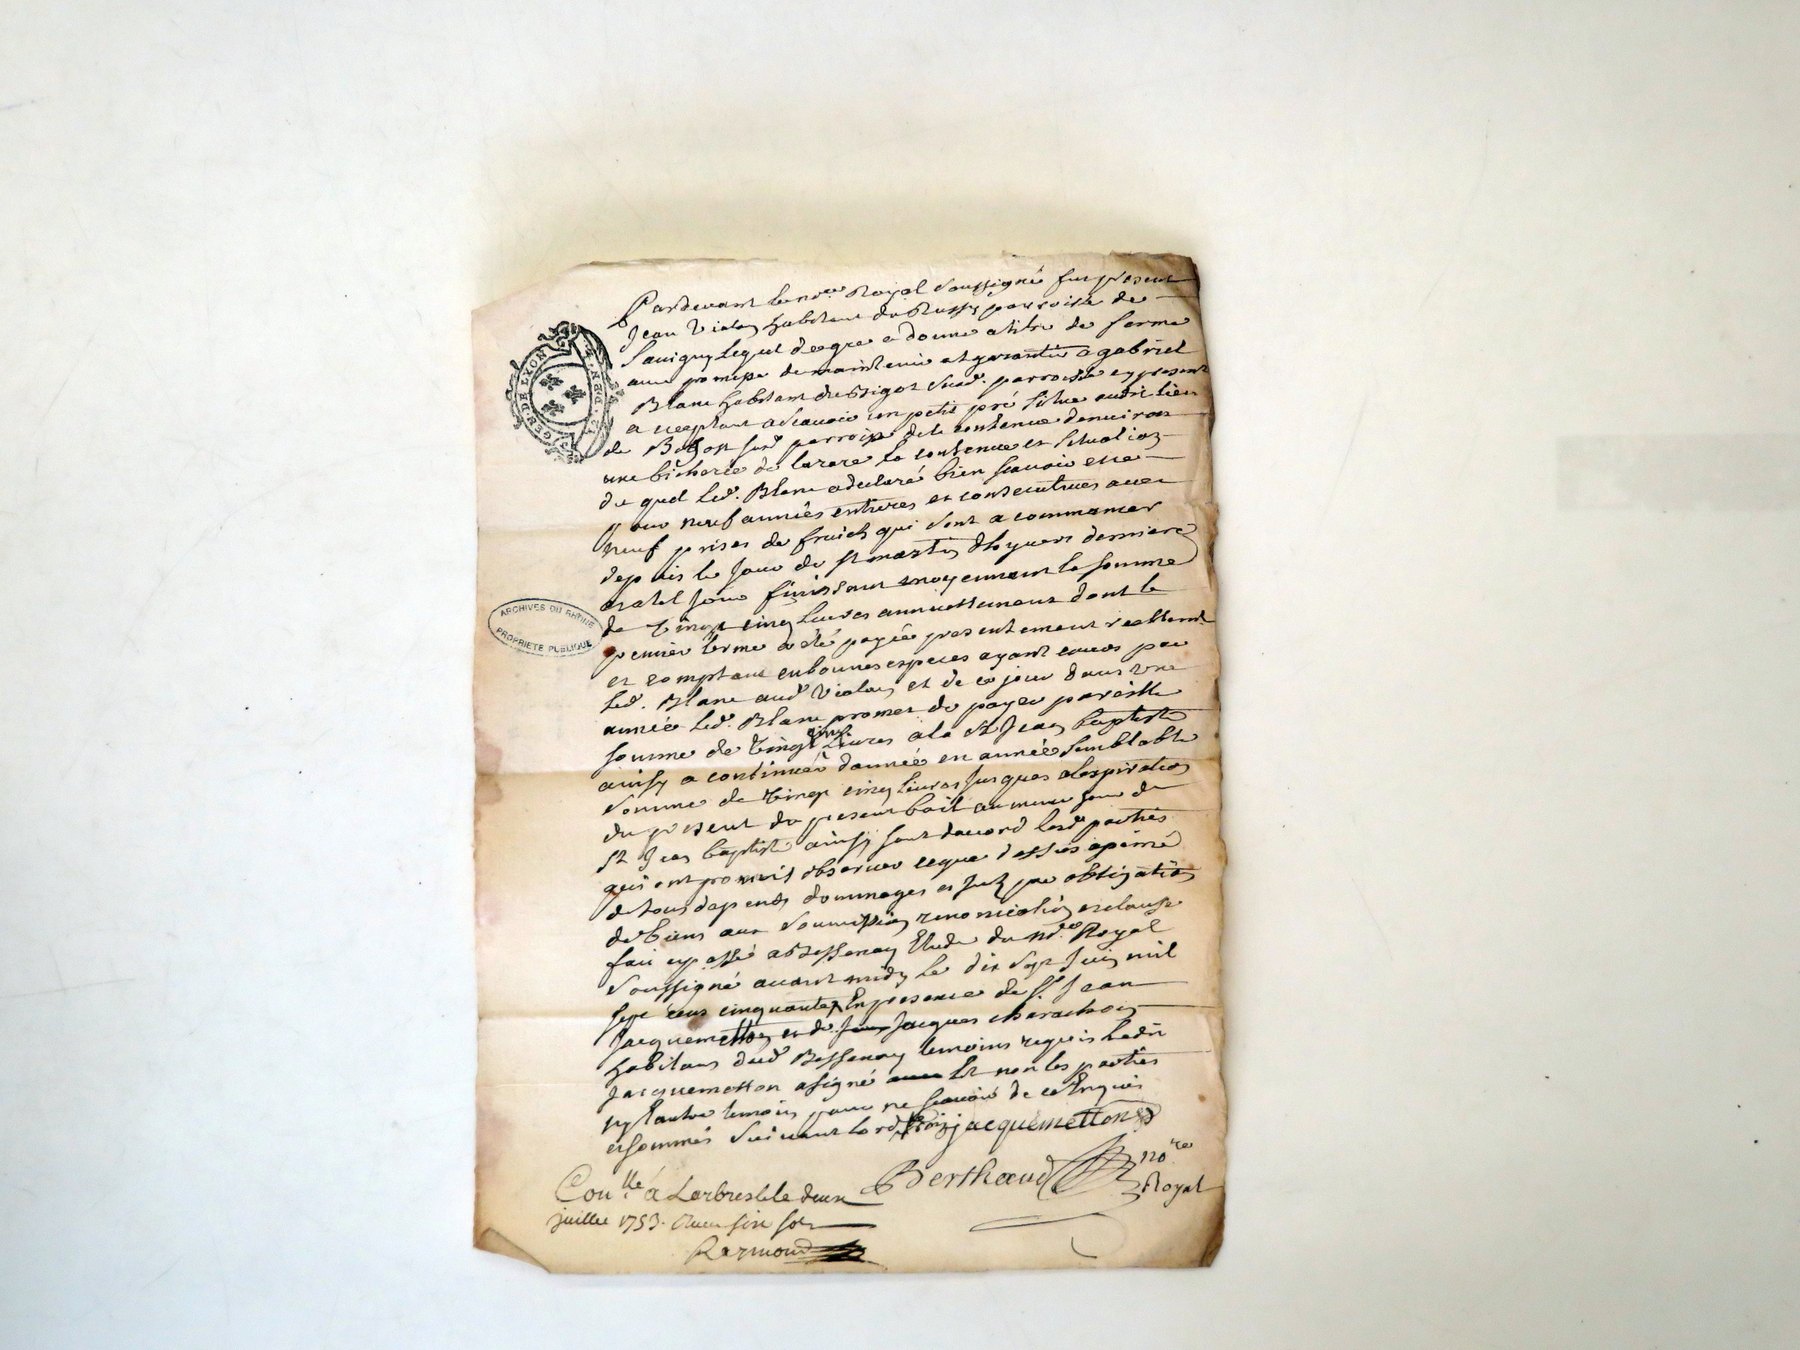 Pardevant le no.re Royal soussigné fut present
Jean Vialon habitant du Russy parroisse de
Savigny lequel de gré a donné a titre de ferme
avec promesse de maintenir et garantir a gabriel
Blanc habitant du Bigot susd. parroisse cy present
et acceptant a scavoir un petit pré situe audit lieu
de sud. parroisse de la contenue denviron
une bicherée de la contenue et situation
du quel led. Blanc a declaré bien scavoir et ce
pour neuf années entieres et consecutives avec
neuf prises de fruich qui sont a commancer
depuis le jour de st martin dhyvert derniere
a tel jour finissant moyennant la somme
de vingt cinq livres annuellement dont le
premier terme a été payée presentement reellement
et comptant en bonnes especes ayant cours par
led. Blanc aud. Vialon et de ce jour dans une
année led. Blanc promet de payer pareille
somme de vingt cinq livres a la st Jean baptiste
ainsy a continuer dannée en année semblable
somme de vingt cinq livres jusques alexpiration
du present du present bail au meme jour de
st Jean baptiste ainsy sont dacord lesd. parties
qui ont promis observer ce que dessus a peine
de tous depends dommages et par obligation
de biens aux soumission renonciation et clause
fait et passé a Bessenay Etude du no.re Royal
soussigné avant midy le dix sept Juin mil
sept cens cinquante En presence de s.r Jean
Jacquemetton et de Jacques
habitans dud. Bessenay temoins requis ledit
Jacquemetton a signé et non les parties
ny lautre temoin pour ne scavoir de ce Enquis
et sommés suivant lord. jacquemetton
Berthaud no.re
Royal
Con.lle a Larbresle le deux
juillet 1753. six sols
Raymond
GEN. DE LYON
ARCHIVES DU RHÔNE
PROPRIETE PUBLIQUE